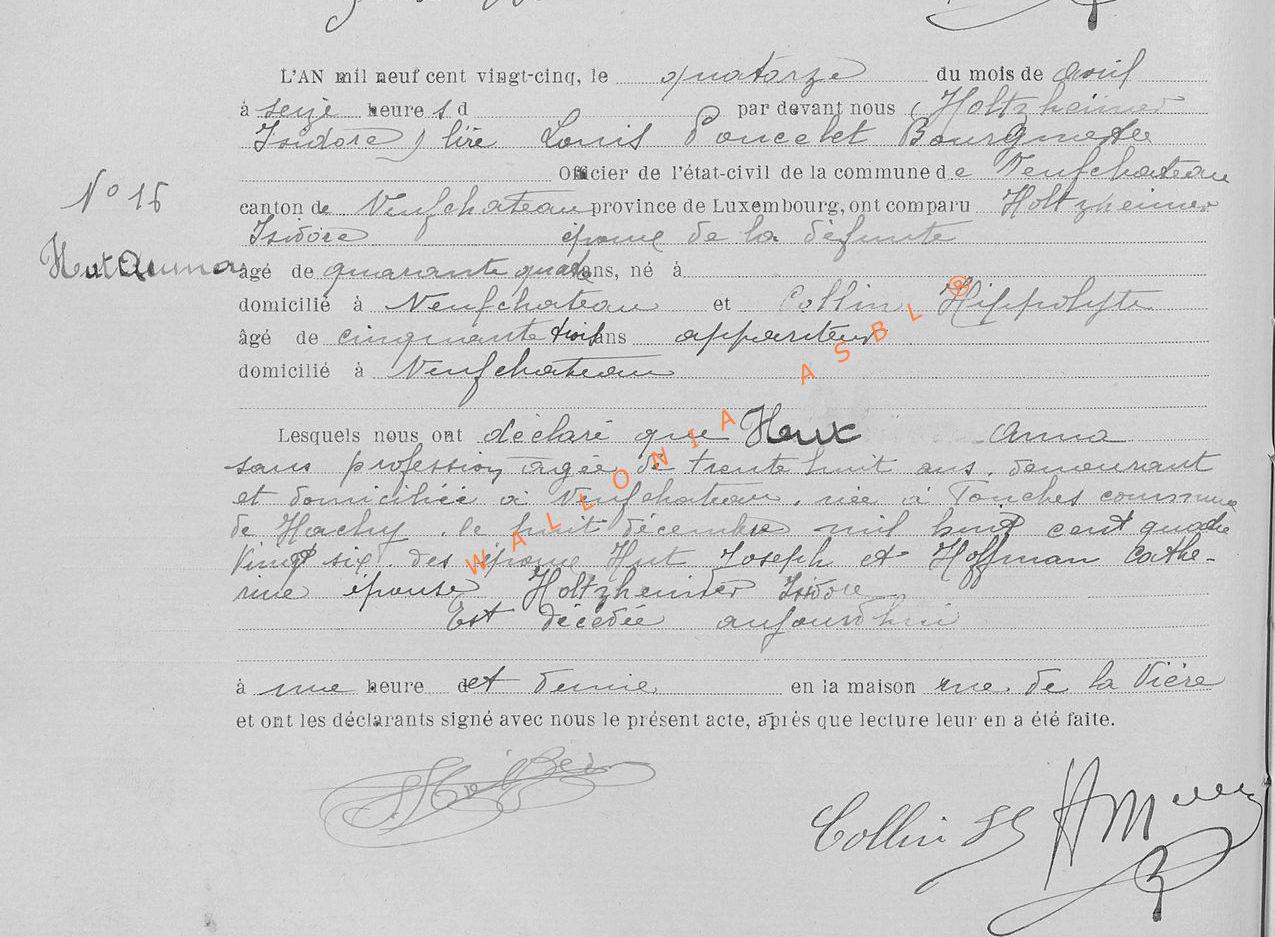 L'AN mil neuf cent vingt-cinq, le quatorze du mois de avril
à seize heure s d par devant nous ( Holtzheimer
Isidore ) lire Louis Poncelet Bourgmestre
Officier de l'état-civil de la commune de Neufchateau
N° 16
canton de Neufchateau province de Luxembourg, ont comparu Holtzheimer
Isidore époux de la défunte
Hut Anna
âgé de quarante quatre ans, né à
domicilié à Neufchateau et Collin Hippolyte
âgé de cinquante trois ans appariteur
domicilié à Neufchateau
WALLONIA ASBL ®
Lesquels nous ont déclaré que Anna
sans profession, agée de trente huit ans, demeurant
et domiciliée à Neufchateau, née à Tonches commune
de Hachy, le huit décembre mil huit cent quatre
vingt six, des époux Hut Joseph et Hoffman Cathe-
rine épouse Holtzheimer Isidore
Est décédée aujourdhui
à une heure det demie en la maison rue de la Vière
et ont les déclarants signé avec nous le présent acte, après que lecture leur en a été faite.
Collin